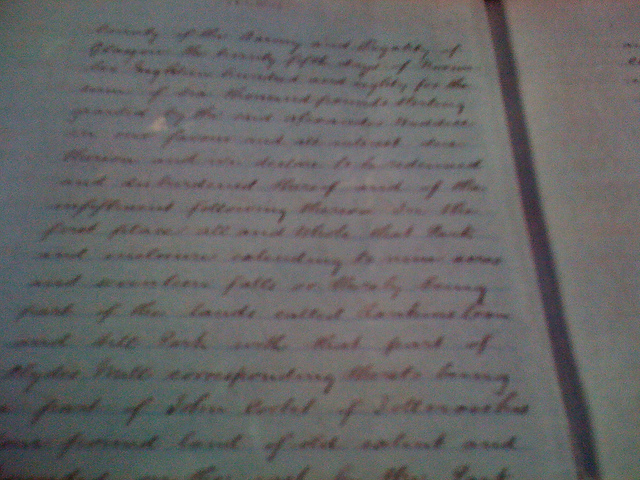 County of the Barony and Regality of
Glasgow the twenty fifth day of
Eighteen hundred and eighty for the
sum of six thousand pounds sterling
granted by the said Alexander
in our favour and all interest due
thereon and we declare to be redeemed
and disburdened thereof and of the
infeftment following thereon In the
first place all and Whole that Park
and inclosure extending to nine acres
and seventeen falls or thereby being
part of the lands called
and Hill Park with that part of
Clydes Mill corresponding thereto being
a part of John Corbet of Tollcross his
pound land of old extent and
the Park